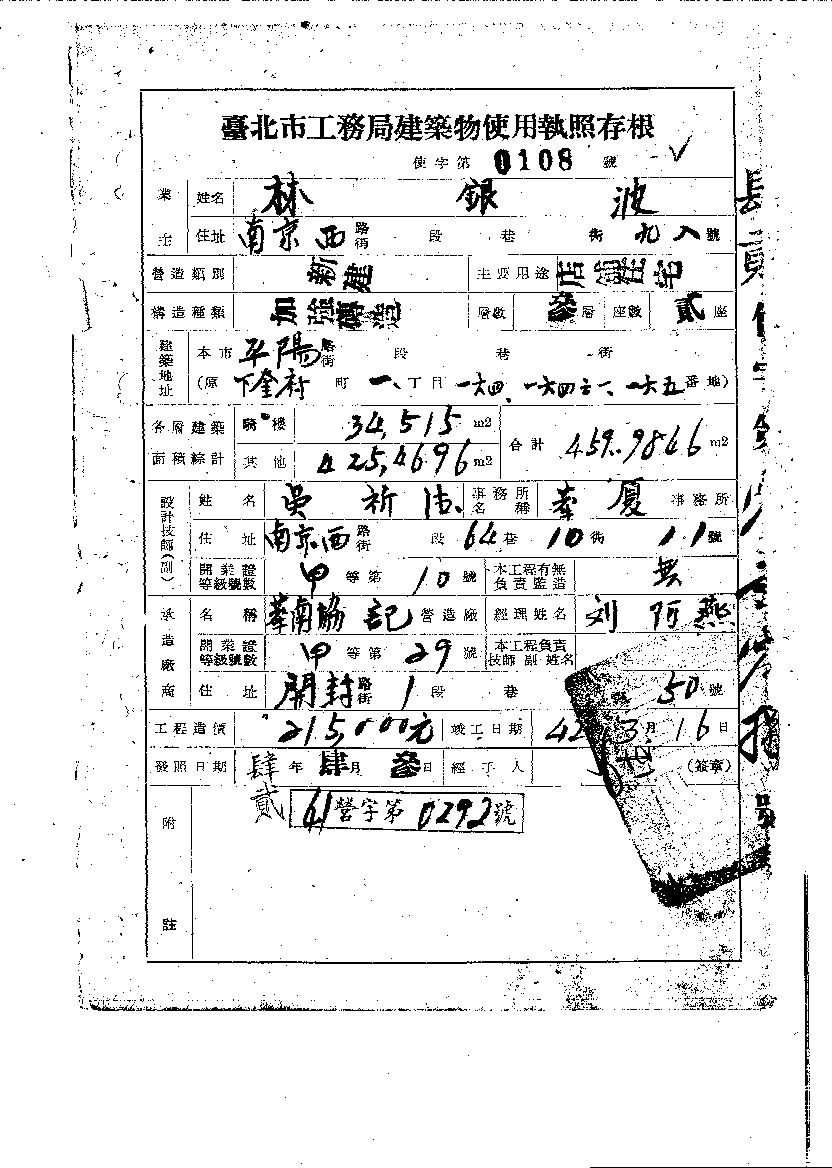 臺北市工務局建築物使用執照存根
使字第 0108 號
業主 姓名 林 銀 波
住址 南京西 路街 段 巷 街 九八 號
營造類別 新建 主要用途 店舖住宅
構造種類 加強磚造 層數 叁 層 座數 貳 座
建築地址 本市 平陽 路街 段 巷 街 號
(原 下奎府 町 一、丁目 一六四、一六四之一、一六五 番地)
各層建築面積綜計 騎樓 34,515 m2 合計 459.9846 m2
其他 425,4696 m2
設計技師(副) 姓名 吳 祈 事務所名稱 華廈 事務所
住址 南京西 路街 段 64 巷 10 街 11 號
開業證等級號數 甲 等第 10 號 本工程有無負責監造 無
承造廠商 名稱 華南協記 營造廠 經理姓名 刘阿燕
開業證等級號數 甲 等第 29 號 本工程負責技師副姓名
住址 開封 路街 1 段 巷 50 號
工程造價 215,000元 竣工日期 42 3 月 16 日
發照日期 肆貳 年 肆 月 叁 日 經手人 (簽章)
附註 41營字第0292號